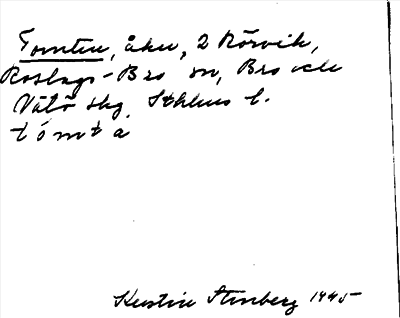 Tomten, åker, 2 Rörvik,
Roslags-Bro sn, Bro och
Vätö skg, Sthlms l.
tómta
Kerstin Stenberg 1945